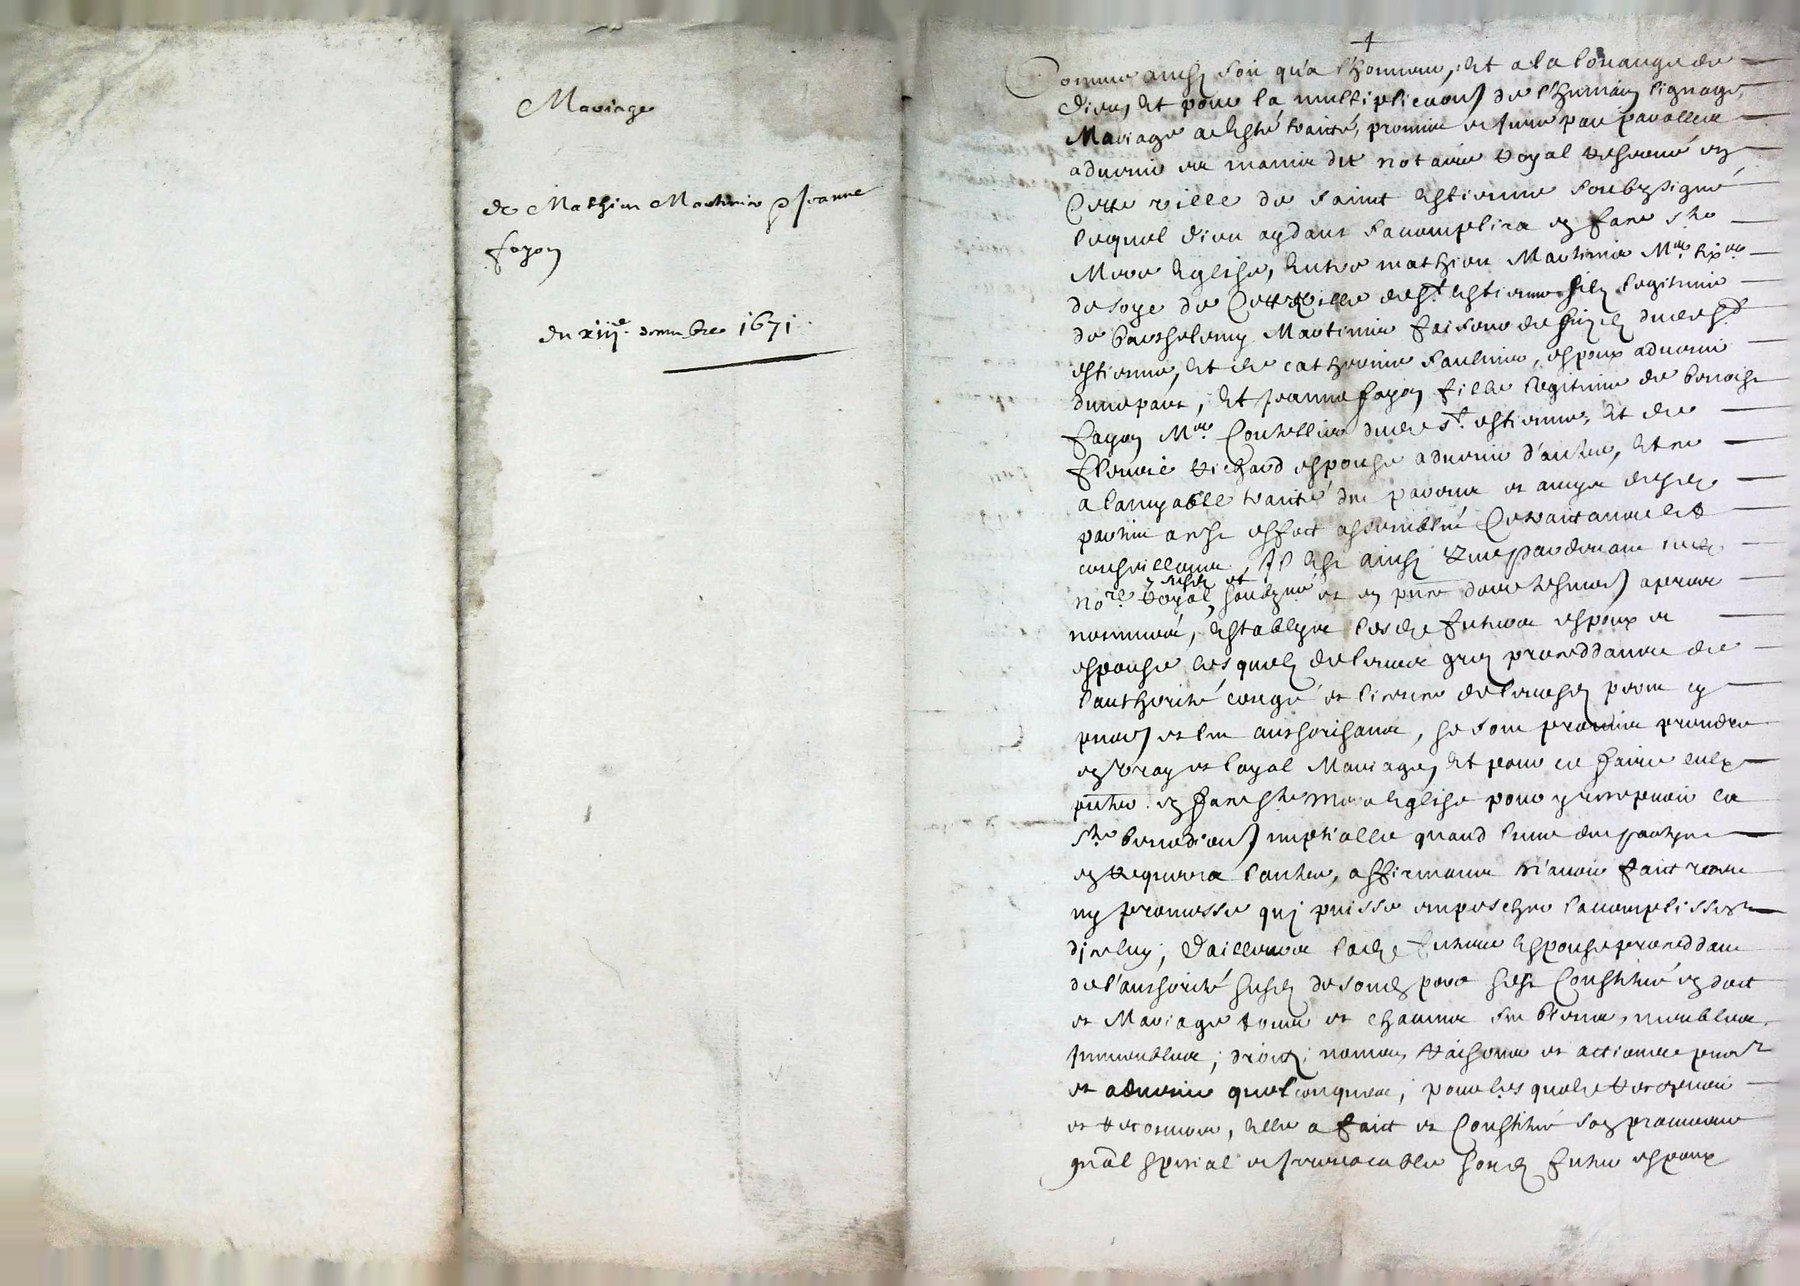 Mariage
de Mathieu Martinier & Jeanne
fayon
du xiiie. decembre 1671.
Comme ainsy soit qu'a l'honneur, Et a la louange de
Dieu, Et pour la multiplicaon de l'humain lignage,
Mariage a Esté traicté, promis et juré par parolles
advenir es mains du notaire Royal Reservé en
Cette ville de Saint Estienne soubzsigné
lequel dieu aydant s'accomplira en face ste
Mere Eglise, Entre mathieu Martinier Mre
de soye de Cette Ville de St. Estienne fils legitime
de barthelemy Martinier faiseur de dud. St
estienne, Et de catherine Saulnier, espoux advenir
d'une part, Et Jeanne fayon fille legitime de benoist
fayon Mre Coutellier dud. St. estienne, Et de
fleurie Richard espouse advenir d'autre, Et ce
a l'amyable traicté des parens et amys desd.
parties a cest effect assemblés Ce traictans et
conseillans, Il Est ainsy que pardevant led.
nore Royal, soubzné et en pnce des tesmoins apres
nommés, Establys lesd. futurs espoux et
espouse lesquels de leurs grez proceddans de
l'authorité congé et licence de leursd. peres cy
pnts et les authorisans, se sont promis prendre
en vray et loyal Mariage, Et pour ce faire eulx
pnter en face ste mere Eglise pour y recepvoir la
ste benedion nuptialle quand l'une des partyes
en Requerra l'autre, affirmans n'avoir faict
ny promesse quj puisse empescher l'accomplissemt
d'jceluy, D'ailleurs lad. future Espouse proceddant
de l'authorité susd. de sond. pere s'est Constitué en dot
et Mariage tous et chacuns ses biens, meubles,
Immeubles, droits, noms, Raisons et actions pnts
et advenir quelconques; pour lesquels Recepvoir
et Recouvrer, Elle a faict et Constitué son procureur
gnal special et jrrevocable sond. futur espoux